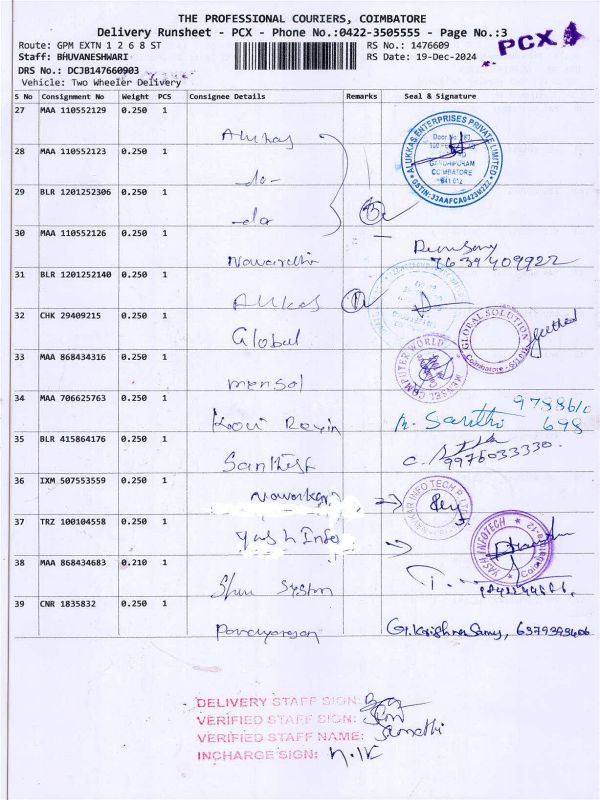 THE PROFESSIONAL COURIERS, COIMBATORE
Delivery Runsheet - PCX - Phone No.:0422-3505555 - Page No.:3
PCX
Route: GPM EXTN 1 2 6 8 ST
RS No.: 1476609
Staff: BHUVANESHWARI
RS Date: 19-Dec-2024
DRS No.: DCJB147660903
Vehicle: Two Wheeler Delivery
S No Consignment No Weight PCS Consignee Details Remarks Seal & Signature
27 MAA 110552129 0.250 1
Alukas
ALUKKAS ENTERPRISES PRIVATE LIMITED
GANDHIPURAM
COIMBATORE
641 012
28 MAA 110552123 0.250 1
-do-
29 BLR 1201252306 0.250 1
-do-
30 MAA 110552126 0.250 1
7639409922
31 BLR 1201252140 0.250 1
Alukas
32 CHK 29409215 0.250 1
Global
GLOBAL SOLUTION
33 MAA 868434316 0.250 1
mensol
COMPUTER WORLD
34 MAA 706625763 0.250 1
9788610
698
35 BLR 415864176 0.250 1
Santhish
9976033330
36 IXM 507553559 0.250 1
INFO TECH
37 TRZ 100104558 0.250 1
Yash Info
YASH INFOTECH
38 MAA 868434683 0.210 1
39 CNR 1835832 0.250 1
DELIVERY STAFF SIGN:
VERIFIED STAFF SIGN:
VERIFIED STAFF NAME:
INCHARGE SIGN: N.K